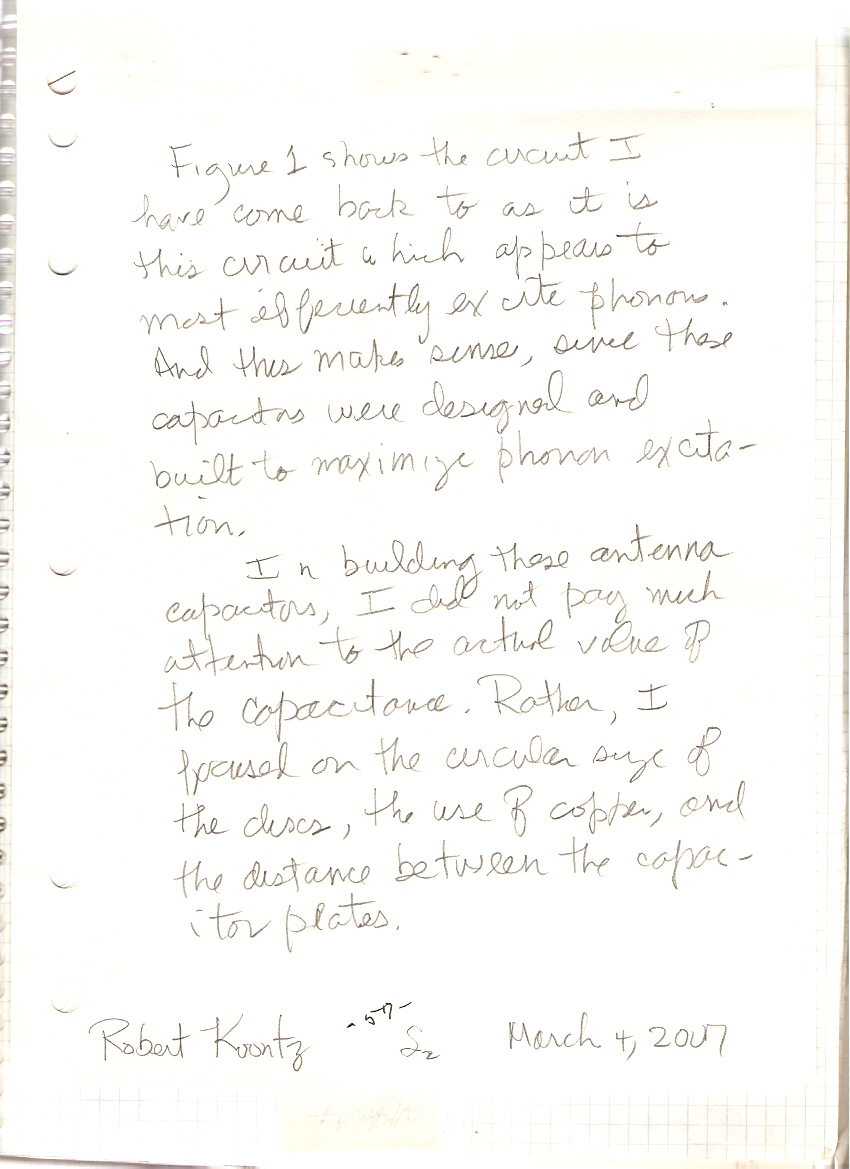 Figure 1 shows the circuit I
have come back to as it is
this circuit which appears to
most efficiently excite phonons.
And this makes sense, since these
capacitors were designed and
built to maximize phonon excita-
tion.
In building these antenna
capacitors, I did not pay much
attention to the actual value of
the capacitance. Rather, I
focused on the circular size of
the discs, the use of copper, and
the distance between the capac-
itor plates.
Robert Koontz -57- S2 March 4, 2007